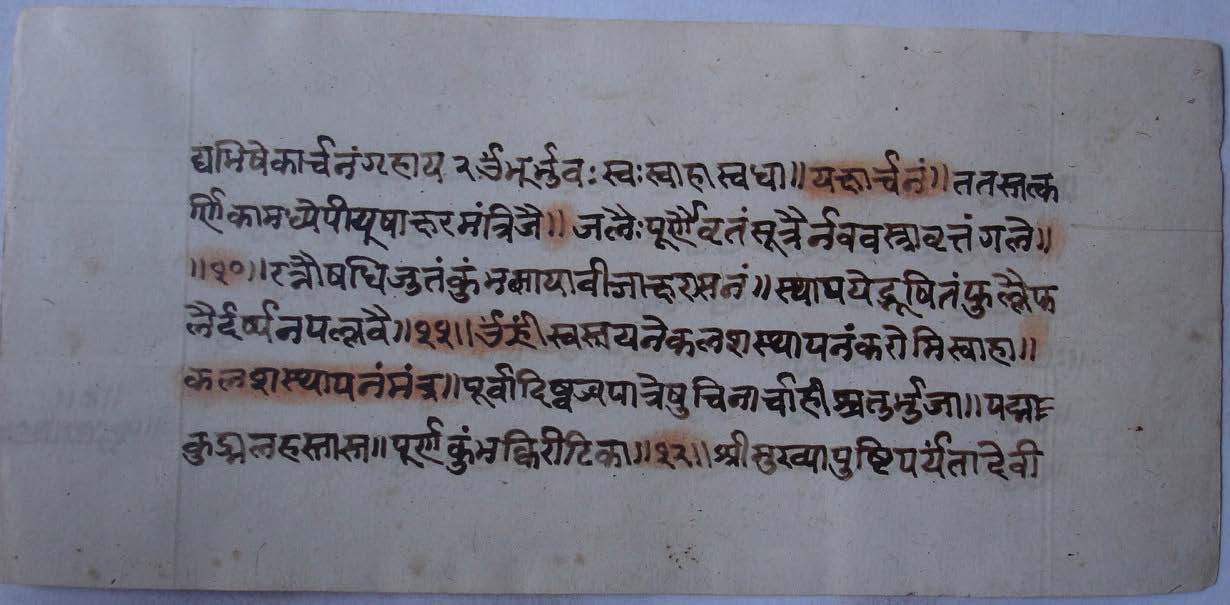 द्यभिषेकार्चनंगृहाय २ ॐभूर्भुवः स्वः स्वाहा स्वधा॥ यक्षार्चनं॥ ततस्तत्क
र्णिकामध्ये पीयूषाक्षरमंत्रिजै॥ जलैः पूर्णैवृतं सूत्रैर्नववस्त्रावृत्तं गले॥
॥१०॥ रत्नौषधिजुतं कुंभमायावीजाक्षरासनं॥ स्थापयेद्भूषितं फुल्लैफ
लैर्दर्प्पनपल्लवै॥११॥ ॐह्रीं स्वस्तयने कलशस्थापनं करोमि स्वाहा॥
कलशस्थापनंमंत्र॥ पूर्वादिष्वऽपात्रेषु चिनार्चाह्रीश्चतुर्भुजा॥ पद्मा
कुड्मलहस्तास्त॥ पूर्णकुंभकिरीटिका॥१२॥ श्री सुरव्यापुष्टिपर्यंता देवी